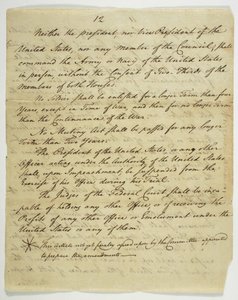 12
Neither the president, nor Vice President of the
United States, nor any Member of the Council of State, shall
command the Army or Navy of the United States
in person, without the Consent of two Thirds of the
Members of both Houses.
No Soldier shall be enlisted for a longer Term than four
Years, except in Time of War, and then for no longer Term
than the Continuance of the War.
No Mutiny Act shall be passed for any longer
Term than two Years.
The President of the United States, or any other
Officer acting under the Authority of the United States
shall, upon Impeachment, be suspended from the
Exercise of his Office during his Trial.
The Judges of the Federal Court, shall be inca-
pable of holding any other Office, or of receiving the
Profits of any other Office or Emolument under the
United States or any of them.
This article not yet finally agreed upon by the Committee appointed
to prepare the amendments